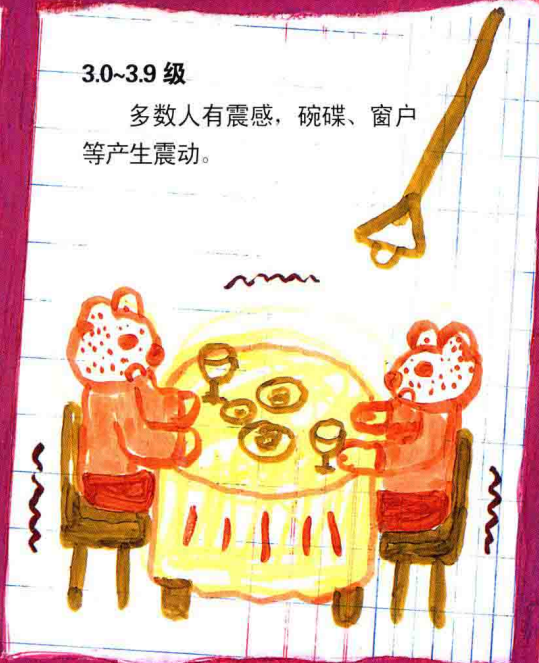 3.0~3.9 级
多数人有震感，碗碟、窗户
等产生震动。